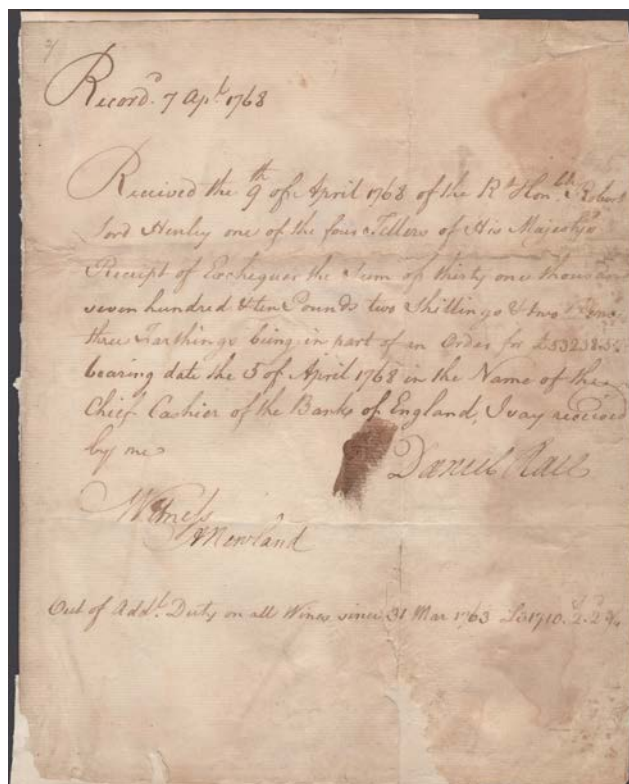 Record.d 7 Ap.l 1768
Received the 9th of April 1768 of the R.t Hon.ble Robert
Lord Henley one of the four Tellers of His Majesty's
Receipt of Exchequer the Sum of thirty one thousand
seven hundred & ten Pounds two Shillings & two Pence
three Farthings being in part of an Order for
bearing date the 5 of April 1768 in the Name of the
Chief Cashier of the Bank of England, I say received
by me
Daniel Race
Witness
A Newland
Out of Add.l Duty on all Wines since 31 Mar 1763 £31710.2.2¾